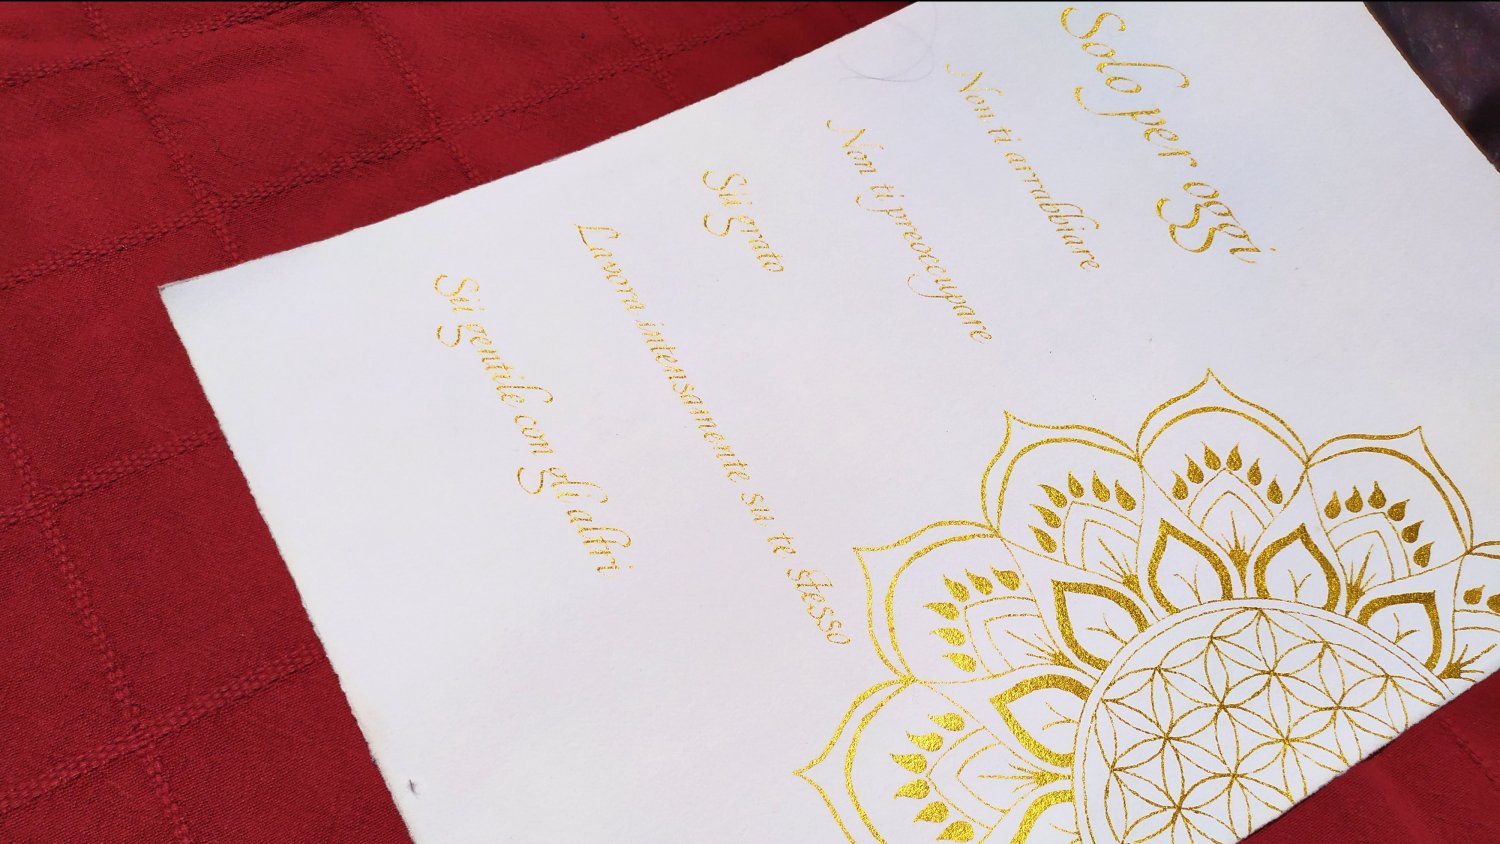 Solo per oggi
Non ti arrabbiare
Non ti preoccupare
Sii grato
Lavora intensamente su te stesso
Sii gentile con gli altri